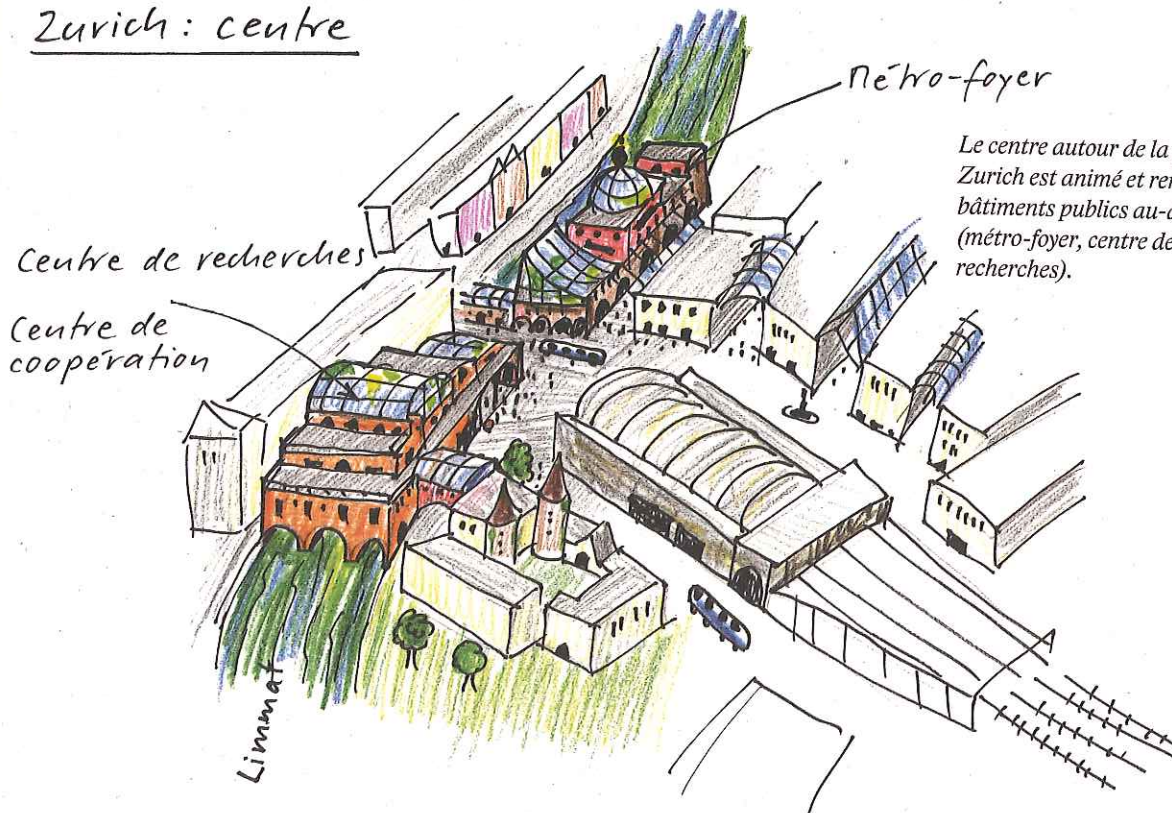 Zurich : centre
Métro-foyer
Le centre autour de la
Zurich est animé et
bâtiments publics
(métro-foyer, centre de
recherches).
Centre de recherches
Centre de
coopération
Limmat